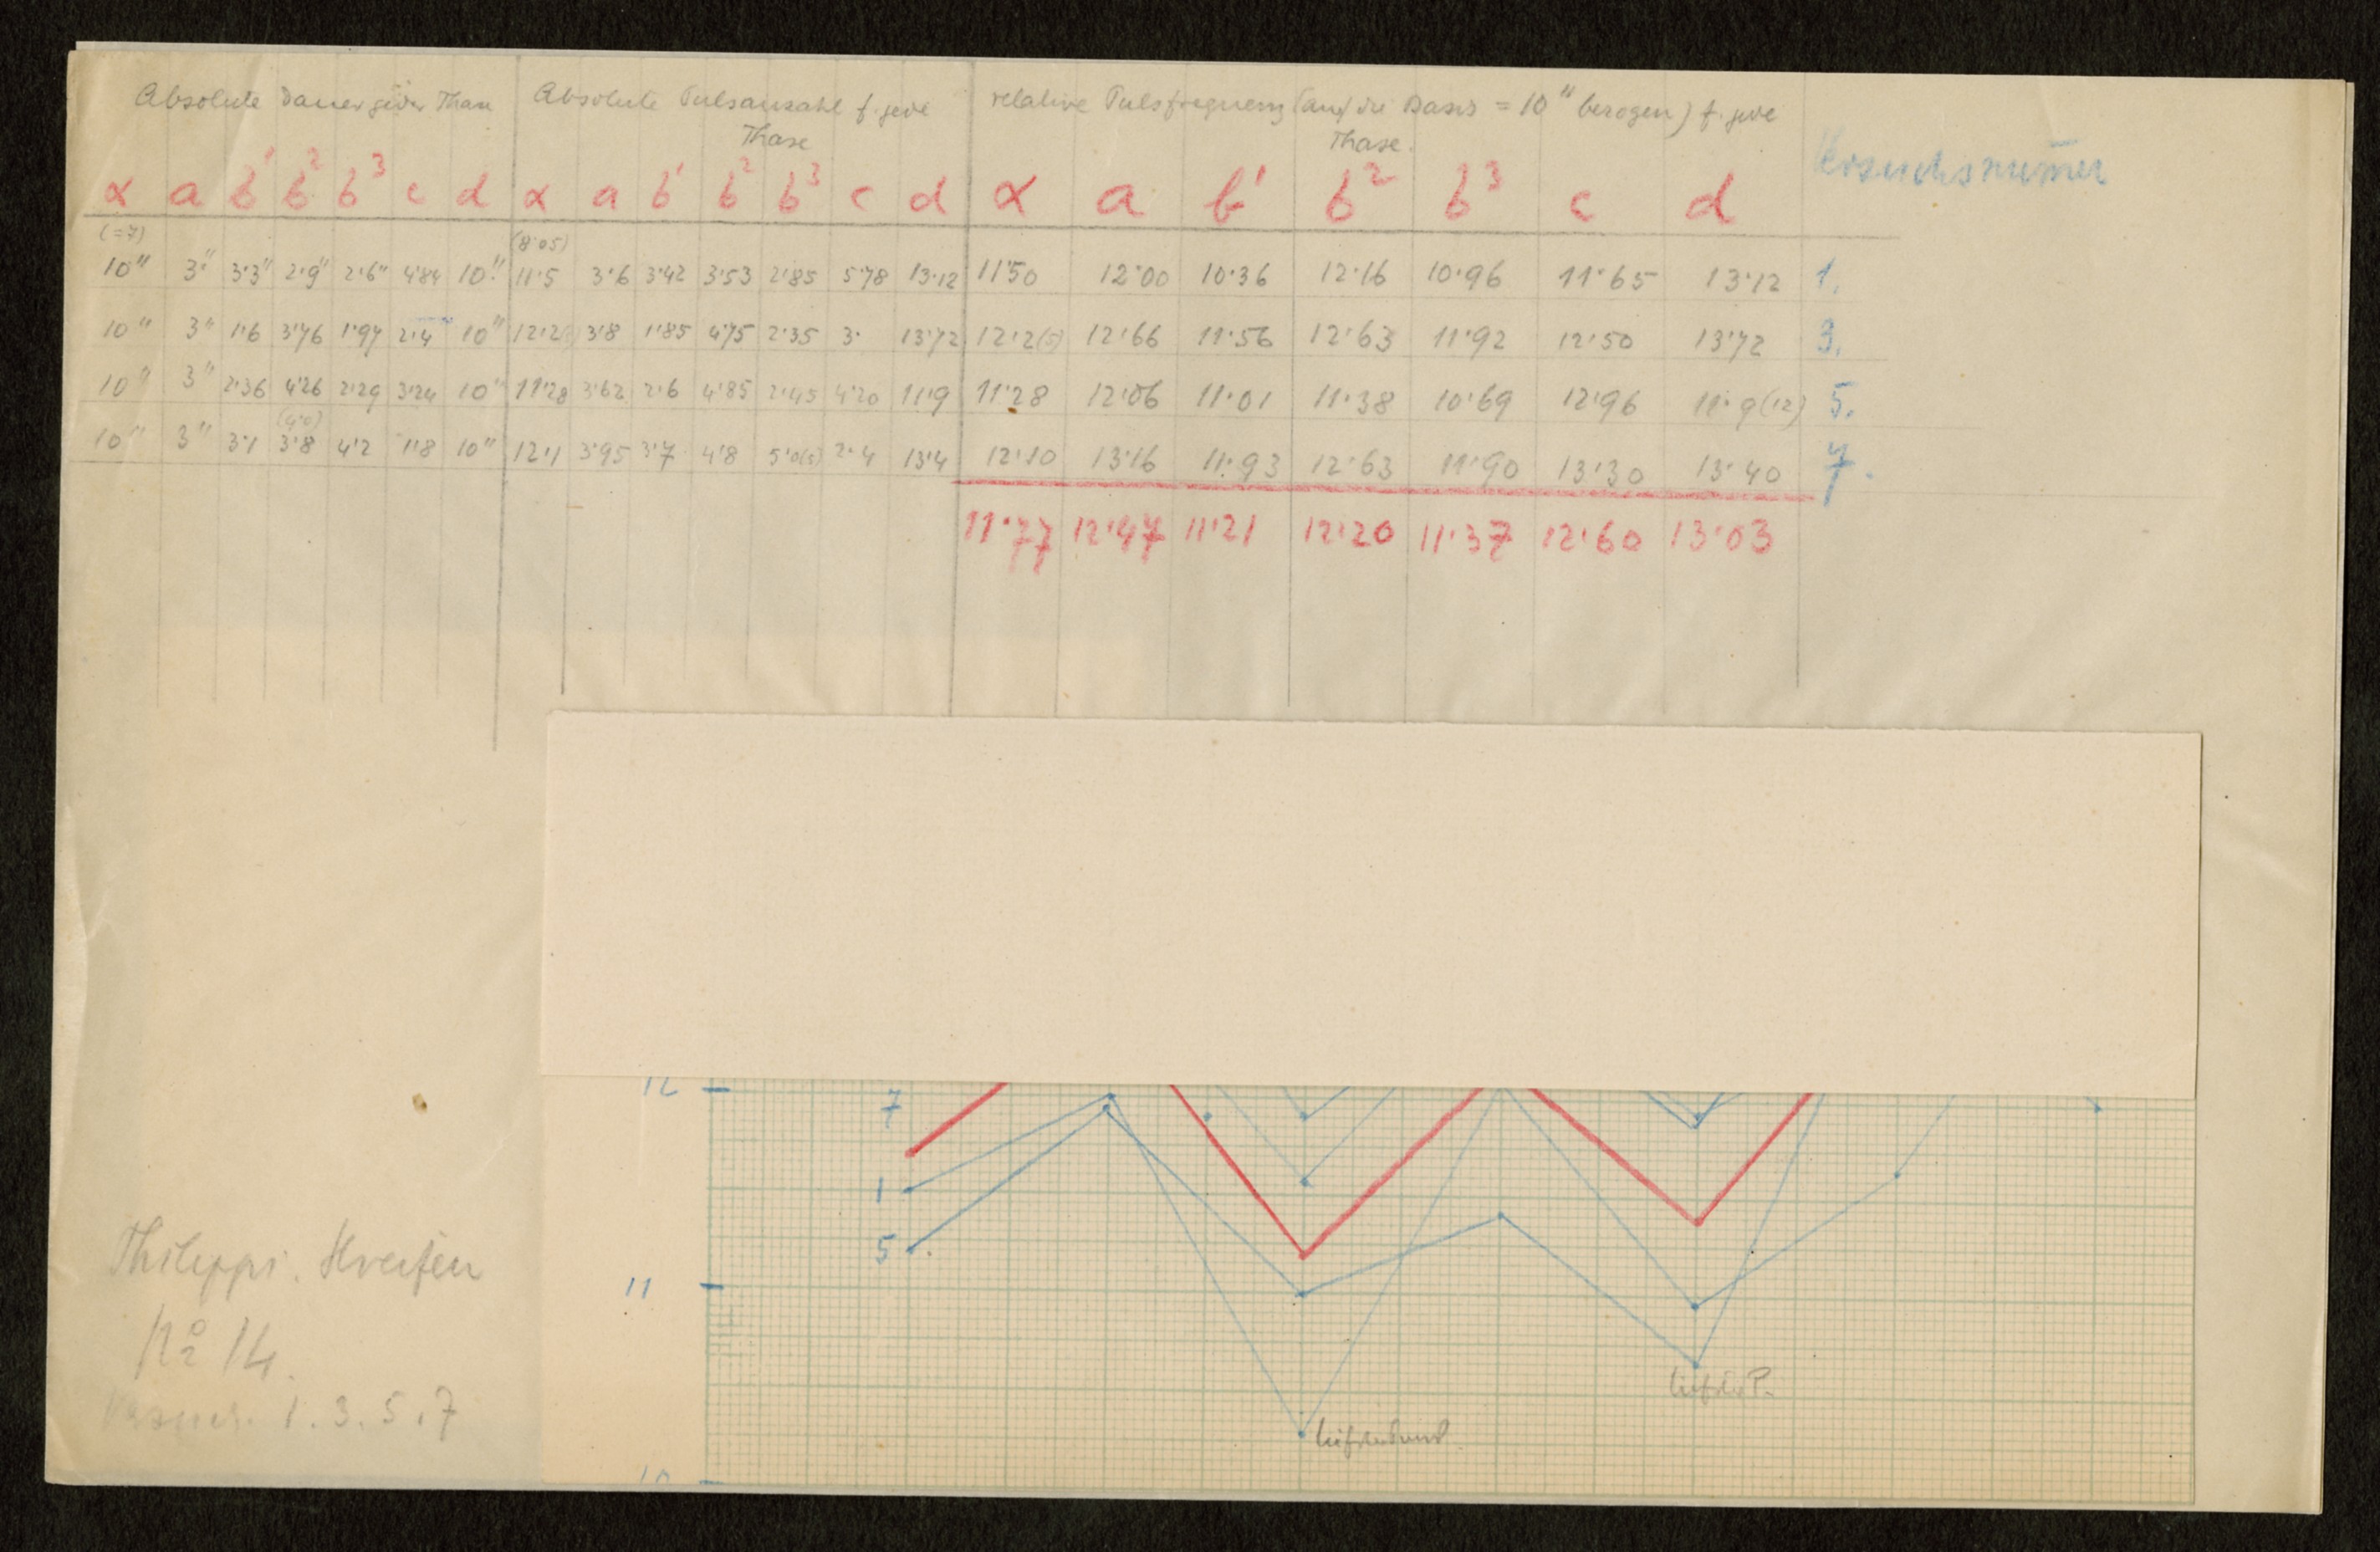 Absolute Dauer jeder Phase Absolute Pulsanzahl f. jede relative Pulsfrequenz (auf die Basis = 10" bezogen) f. jede
Phase Phase.
Versuchsnum̄er
α a b¹ b² b³ c d α a b¹ b² b³ c d α a b¹ b² b³ c d
(=7) (8·05)
10" 3" 3·3" 2·9" 2·6" 4·84 10" 11·5 3·6 3·42 3·53 2·85 5·78 13·12 11·50 12·00 10·36 12·16 10·96 11·65 13·12 1.
10" 3" 1·6 3·76 1·97 2·4 10" 12·2 3·8 1·85 4·75 2·35 3· 13·72 12·2(5) 12·66 11·56 12·63 11·92 12·50 13·72 3.
10" 3" 2·36 4·26 2·29 3·24 10" 11·28 3·62 2·6 4·85 2·45 4·20 11·9 11·28 12·06 11·01 11·38 10·69 12·96 11·9(12) 5.
(4·0)
10" 3" 3·1 3·8 4·2 1·8 10" 12·1 3·95 3·7 4·8 5·0(5) 2·4 13·4 12·10 13·16 11·93 12·63 11·90 13·30 13·40 7.
11·77 12·47 11·21 12·20 11·37 12·60 13·03
12
7
1
5
11
10
Philippi.
No 14.
Versuch. 1. 3. 5. 7